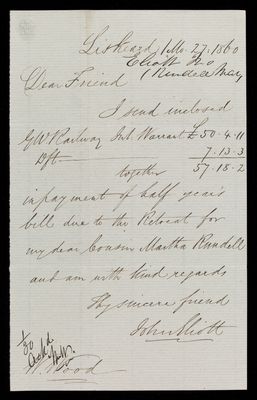 Liskeard, 1 Mo. 27. 1860
Eliott Jno
(Rundell Mary
Dear Friend
I send inclosed
GW Railway Int. Warrant £ 50 - 4 - 11
Dft 7 - 13 - 3
together 57 - 18 - 2
in payment of half year's
bill due to the Retreat for
my dear Cousin Martha Rundell
and am with kind regards
Thy sincere friend
John Eliott
1/30
Ackd
W. Wood